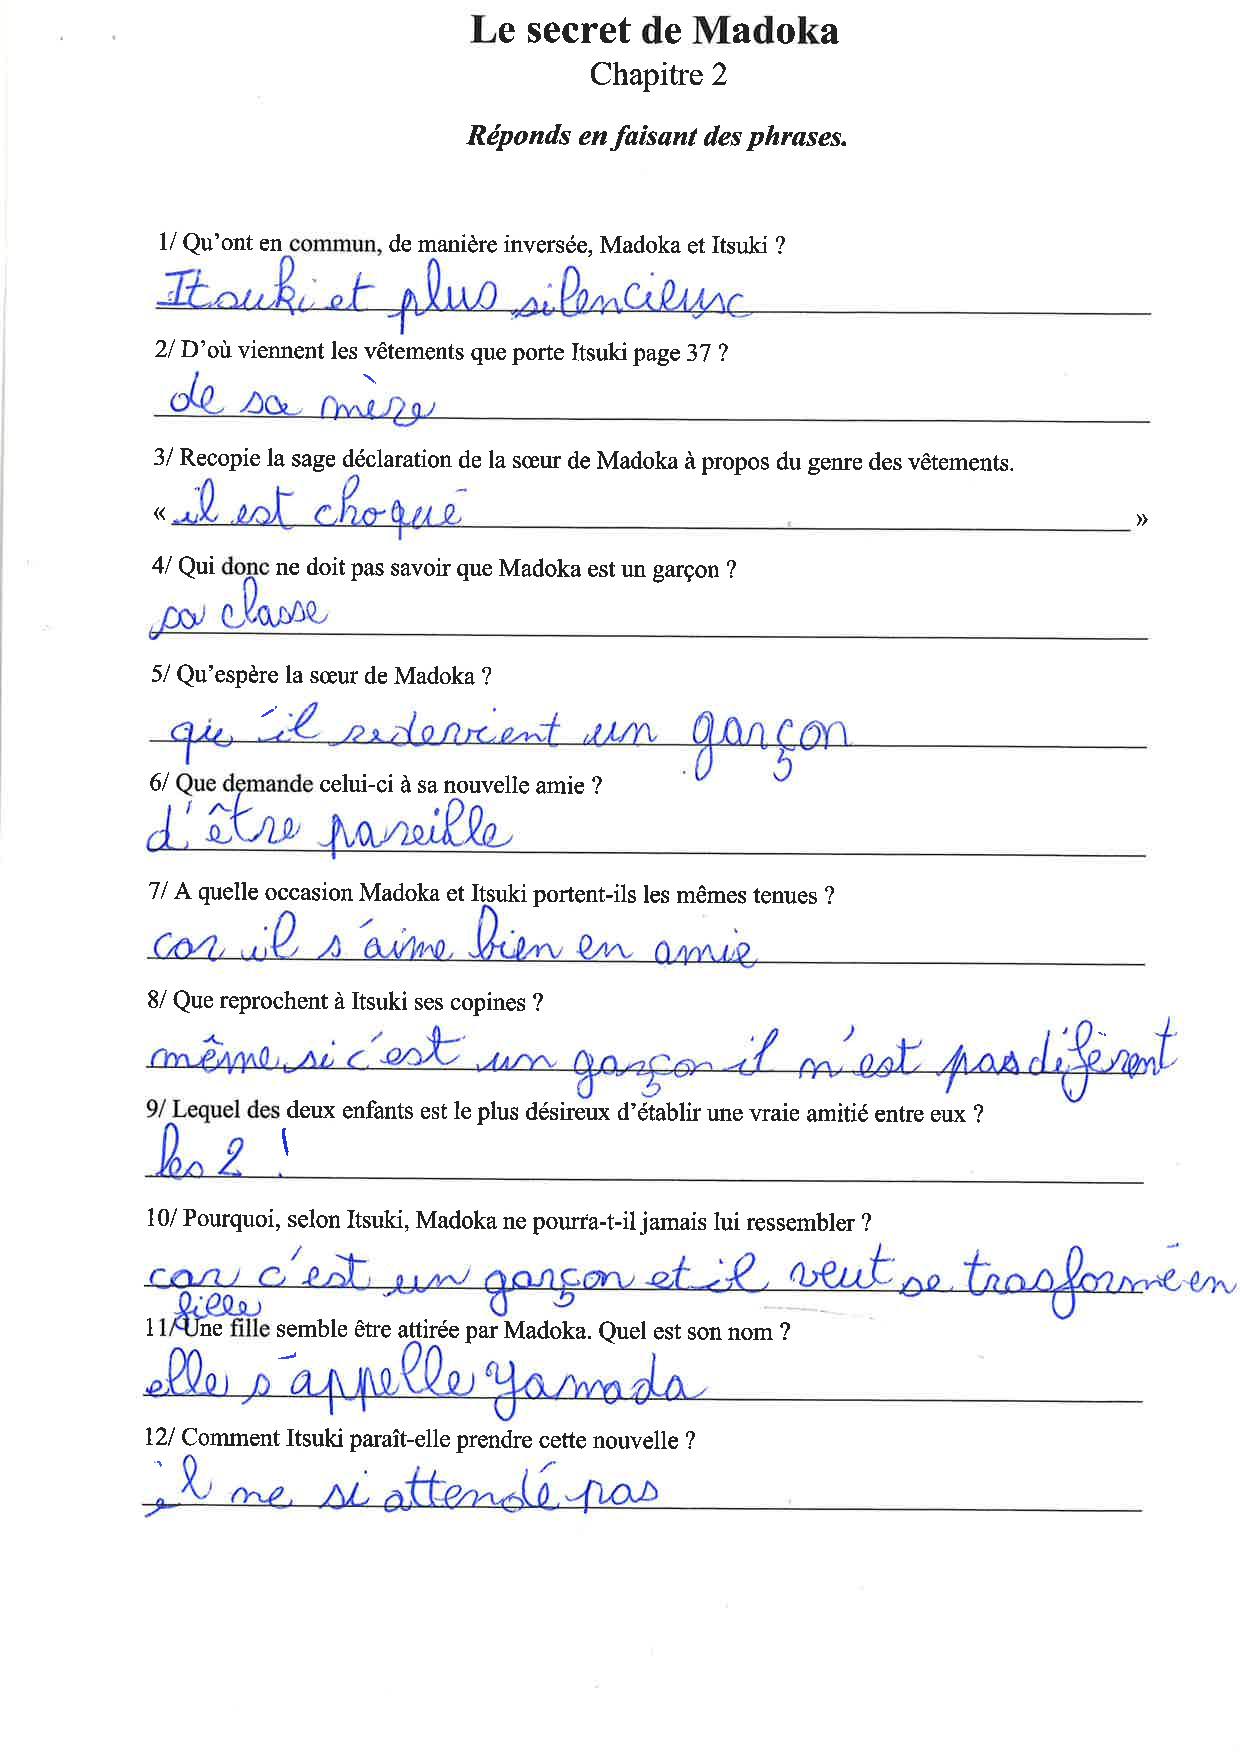 Le secret de Madoka
Chapitre 2
Réponds en faisant des phrases.
1/ Qu'ont en commun, de manière inversée, Madoka et Itsuki ?
Itsuki et plus silencieuse
2/ D'où viennent les vêtements que porte Itsuki page 37 ?
de sa mère
3/ Recopie la sage déclaration de la sœur de Madoka à propos du genre des vêtements.
« il est choqué »
4/ Qui donc ne doit pas savoir que Madoka est un garçon ?
sa classe
5/ Qu'espère la sœur de Madoka ?
qu'il redevient un garçon
6/ Que demande celui-ci à sa nouvelle amie ?
d'être pareille
7/ A quelle occasion Madoka et Itsuki portent-ils les mêmes tenues ?
car il s'aime bien en amie
8/ Que reprochent à Itsuki ses copines ?
même si c'est un garçon il n'est pas diférent
9/ Lequel des deux enfants est le plus désireux d'établir une vraie amitié entre eux ?
les 2 !
10/ Pourquoi, selon Itsuki, Madoka ne pourra-t-il jamais lui ressembler ?
car c'est un garçon et il veut se trasformé en
fille
11/ Une fille semble être attirée par Madoka. Quel est son nom ?
elle s'appelle Yamada
12/ Comment Itsuki paraît-elle prendre cette nouvelle ?
il ne si attendé pas